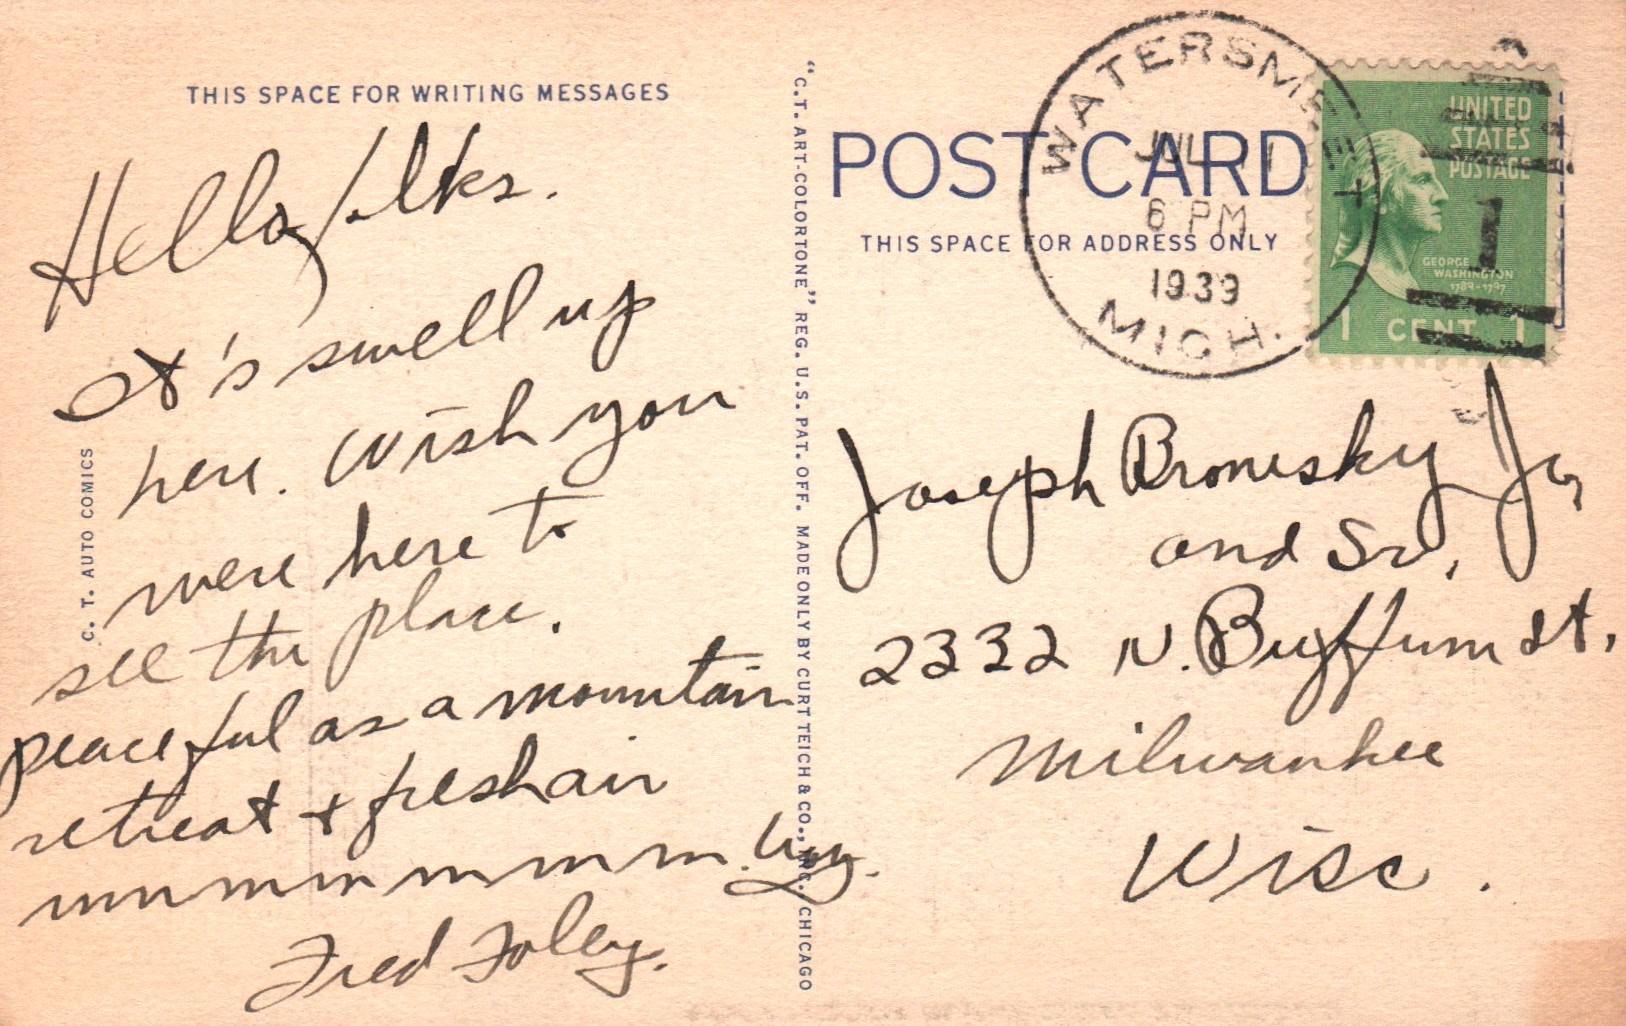 THIS SPACE FOR WRITING MESSAGES
Hello folks.
It's swell up
here. Wish you
were here to
see the place.
peaceful as a mountain
retreat + fresh air
mmmmmmm.
Fred Foley.
C. T. AUTO COMICS
"C.T. ART-COLORTONE" REG. U.S. PAT. OFF. MADE ONLY BY CURT TEICH & CO., INC. CHICAGO
POST CARD
THIS SPACE FOR ADDRESS ONLY
WATERSMEET
JUL 1
6 PM
1939
MICH.
UNITED
STATES
POSTAGE
1
GEORGE
WASHINGTON
1789-1797
1 CENT 1
Joseph Bronesky Jr,
and Sr,
2332 N. Buffum St.
Milwaukee
Wisc.